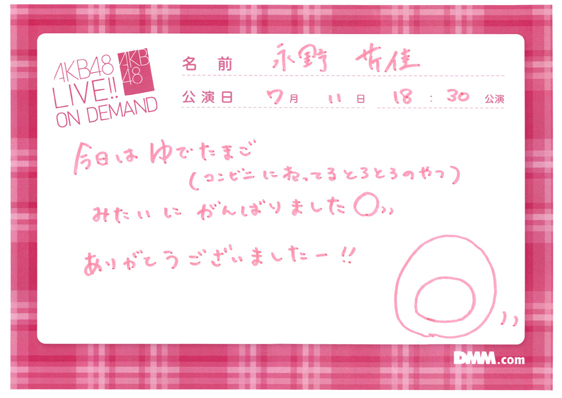 AKB48
LIVE!!
ON DEMAND
AKB
48
名前 永野 芹佳
公演日 7月 11日 18:30 公演
今日は ゆでたまご
(コンビニに ねってる とろとろのやつ)
みたいに がんばりました〇,,
ありがとうございましたー!!
DMM.com